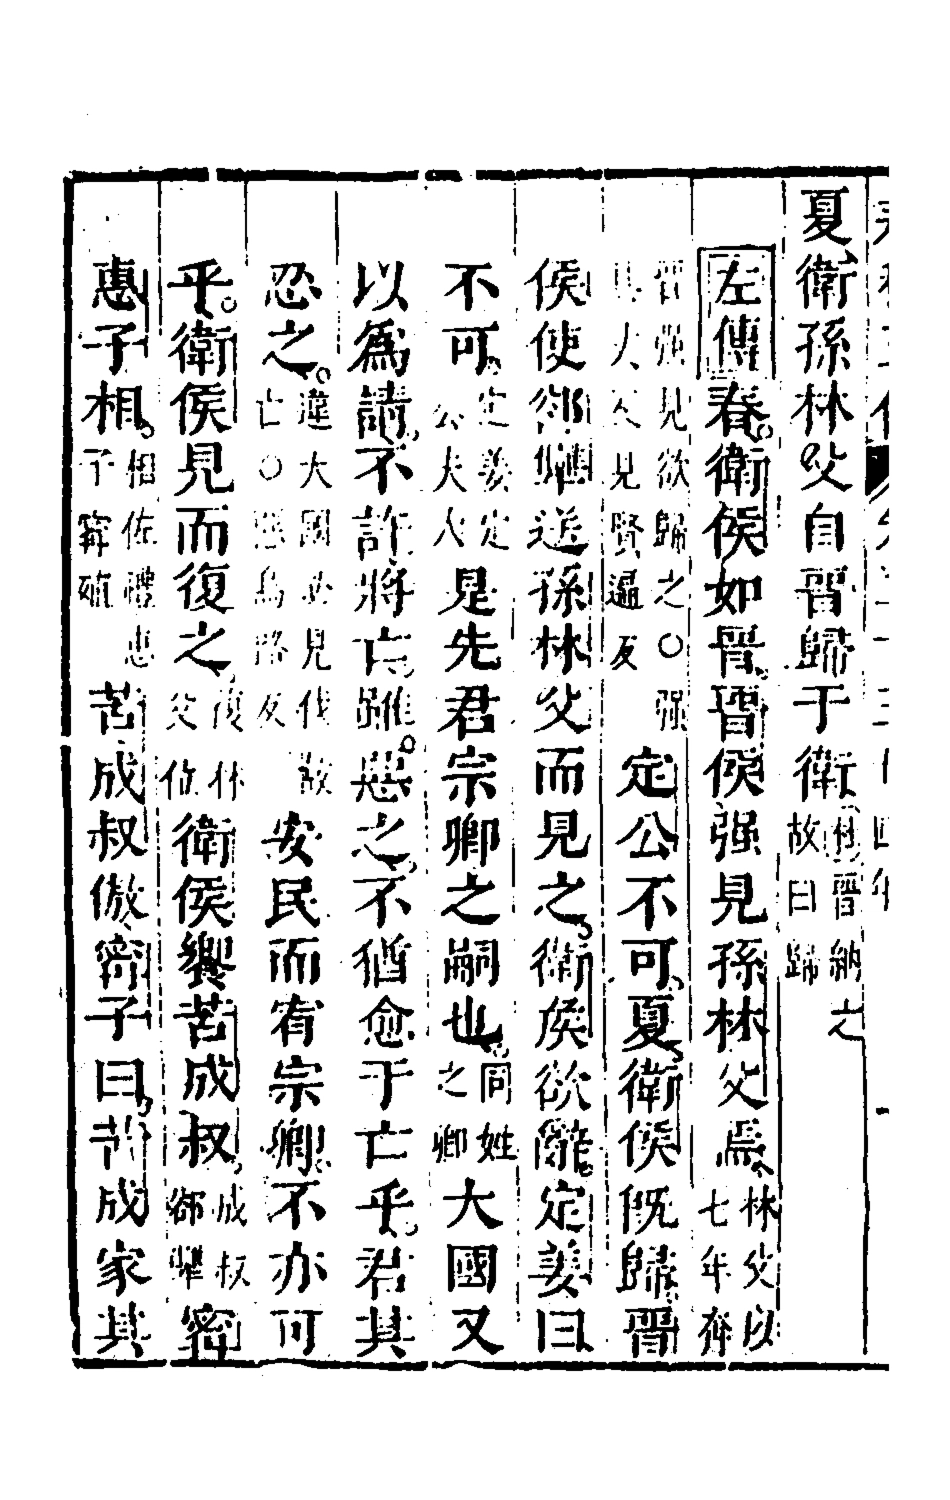 夏衛孫林父自晉歸于衛杜晉納之故曰歸
左傳春衛侯如晉晉侯强見孫林父焉林父以七年奔
晉强見欲歸之○强見大夫見賢遍反定公不可夏衛侯旣歸晉
侯使郤犫送孫林父而見之衛侯欲辭定姜曰
不可定姜定公夫人是先君宗卿之嗣也同姓之卿大國又
以爲請不許將亡雖惡之不猶愈于亡乎君其
忍之違大國必見伐故亡○惡烏路反安民而宥宗卿不亦可
乎衛侯見而復之復林父位衛侯饗苦成叔成叔郤犫甯
惠子相相佐禮惠子甯殖苦成叔傲甯子曰苦成家其